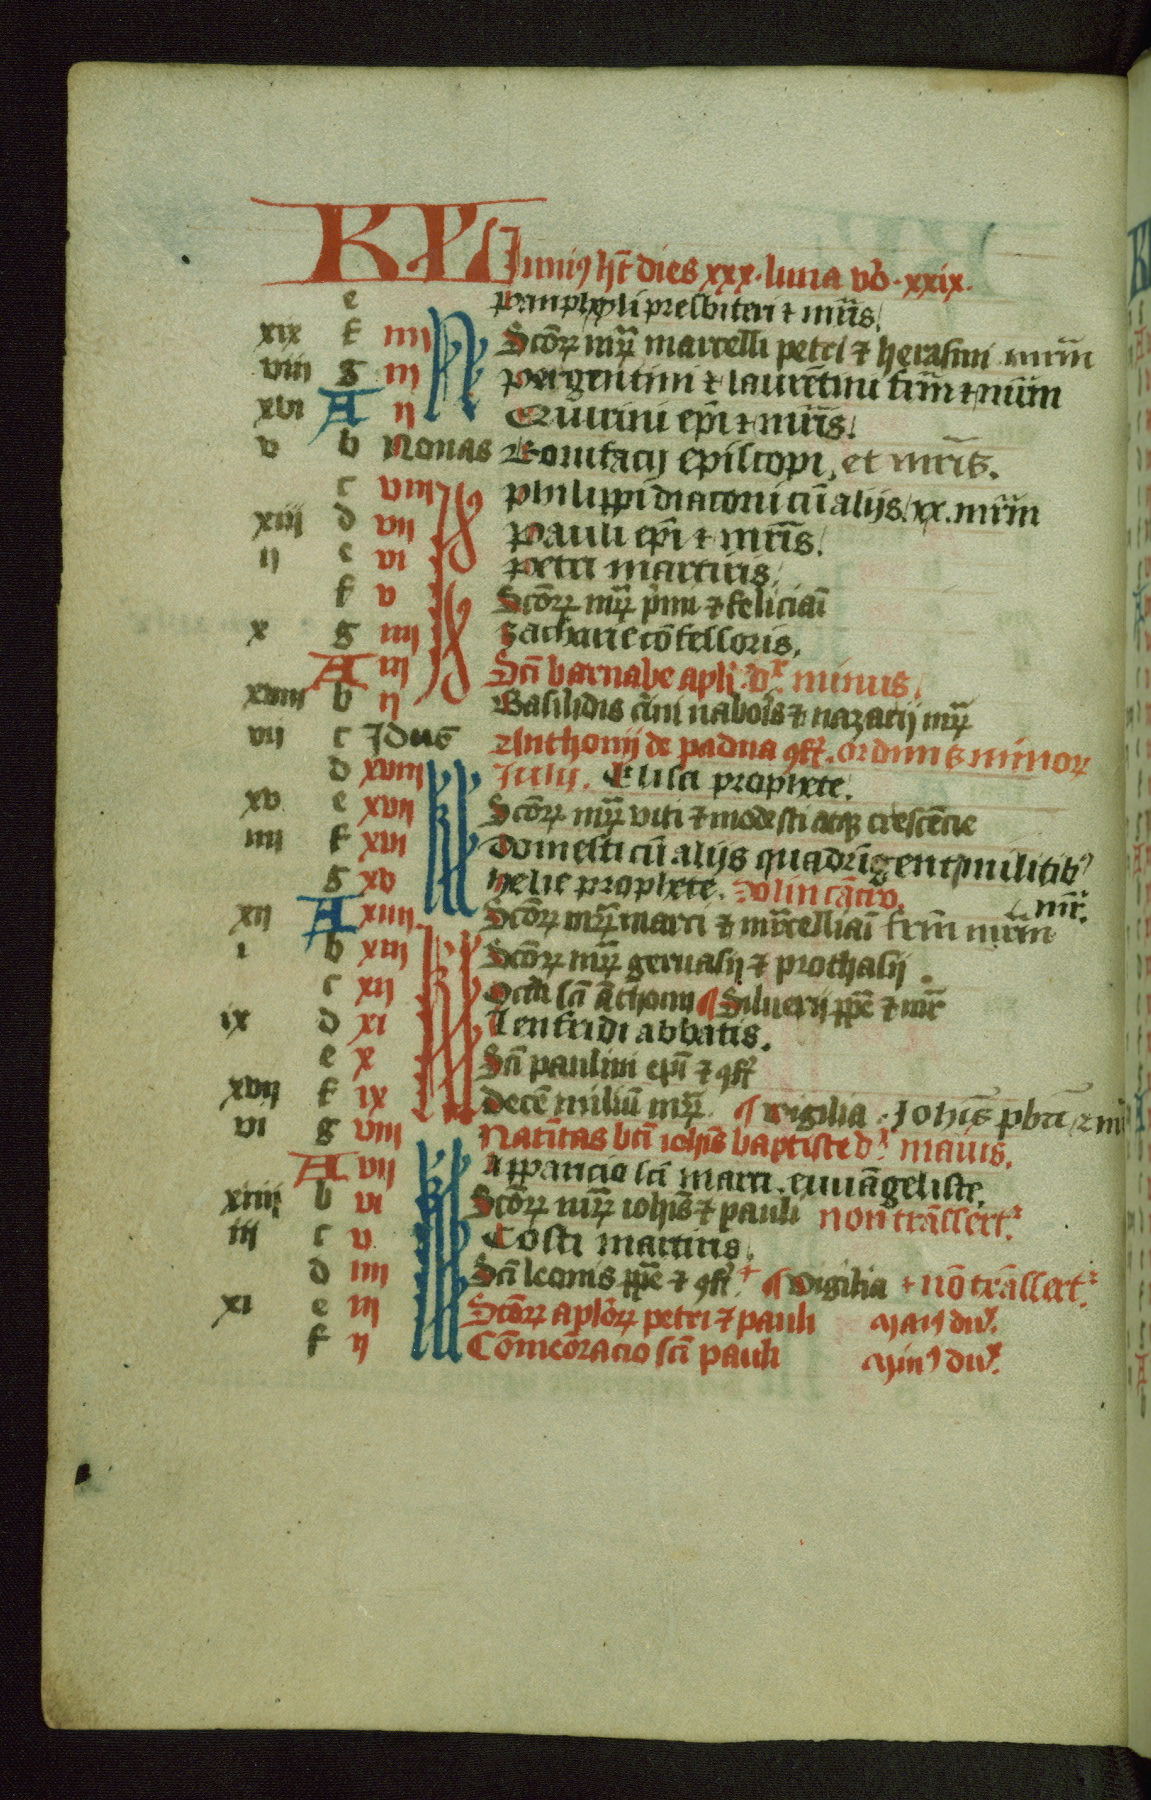 KL Junius ht dies xxx. luna vo. xxix.
e pamphyli presbiteri et mris.
xix f iiii N Scōrꝝ mrꝝ marcelli petri et herasmi mrm
viii g iii pergentini et laurētini frm et mrm
xvi A ii Quirini epi et mris.
v b Nonas Bonifacij episcopi, et mris.
c viii Id philippi diaconi cū alijs. xx. mrm
xiii d vii pauli epi et mris.
ii e vi petri martiris.
f v Scōrꝝ mrꝝ pimi et feliciāi
x g iiii zacharie cōfessoris.
A iii Scī barnabe apli. dx minus.
xviii b ii Basilidis cirini naboris et nazarij mrꝝ
vii c Idus Anthonij de padua ꝯff. ordinis minorꝝ
d xviii kl Julij. Elisei prophete.
xv e xvii Scōrꝝ mrꝝ viti et modesti atqꝫ crescēcie
iiii f xvi domesti cū alijs quadrigent militibꝰ
g xv helie prophete. mr.
xii A xiiii Scōrꝝ mrꝝ marci et mrcelliāi frm mrm
i b xiii Scōrꝝ mrꝝ geruasij et prothasij
c xii Octa scī āthonii ¶ Siluerij ppe et mr
ix d xi Lenfridi abbatis.
e x Scī paulini epi et ꝯff
xvii f ix decē miliū mrꝝ. ¶ vigilia. Johis pbri et m
vi g viii Natītas btī iohis baptiste dx maius.
A vii Apparicio scī marci. ewāgeliste.
xiiii b vi Scōrꝝ mrꝝ iohis et pauli non trāsfert.
iii c v Costi martiris.
d iiii Scī leonis ppe et ꝯff. + ¶ vigilia + nō trāsfert.
xi e iii Scōrꝝ aplorꝝ petri et pauli maiꝰ dux.
f ii Cōmeōracio scī pauli minꝰ dux.